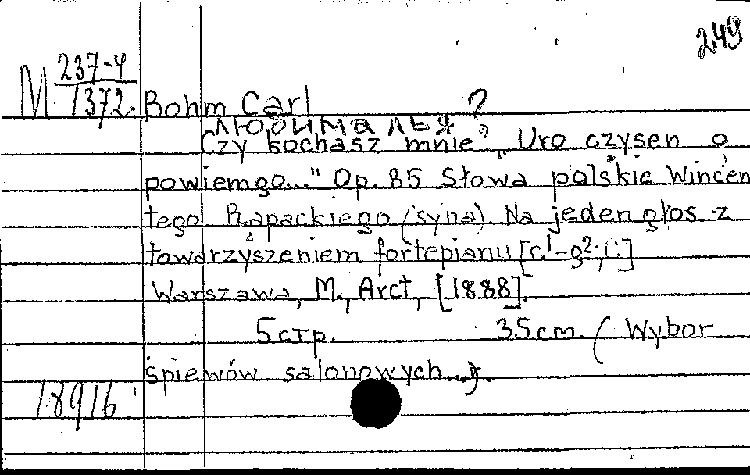 249
М 237-4/1372.
Bohm Carl
Любима ль я?
Czy kochasz mnie? „Uro czysen o
powiemgo..." Op. 85 Słowa polskie Wincen
tego Rapackiego (syna). Na jeden głos z
towarzyszeniem fortepianu [c¹-g²; i.]
Warszawa, M. Arct, [1888].
5 стр. 35 cm. (Wybor
śpiewów salonowych...).
18916.